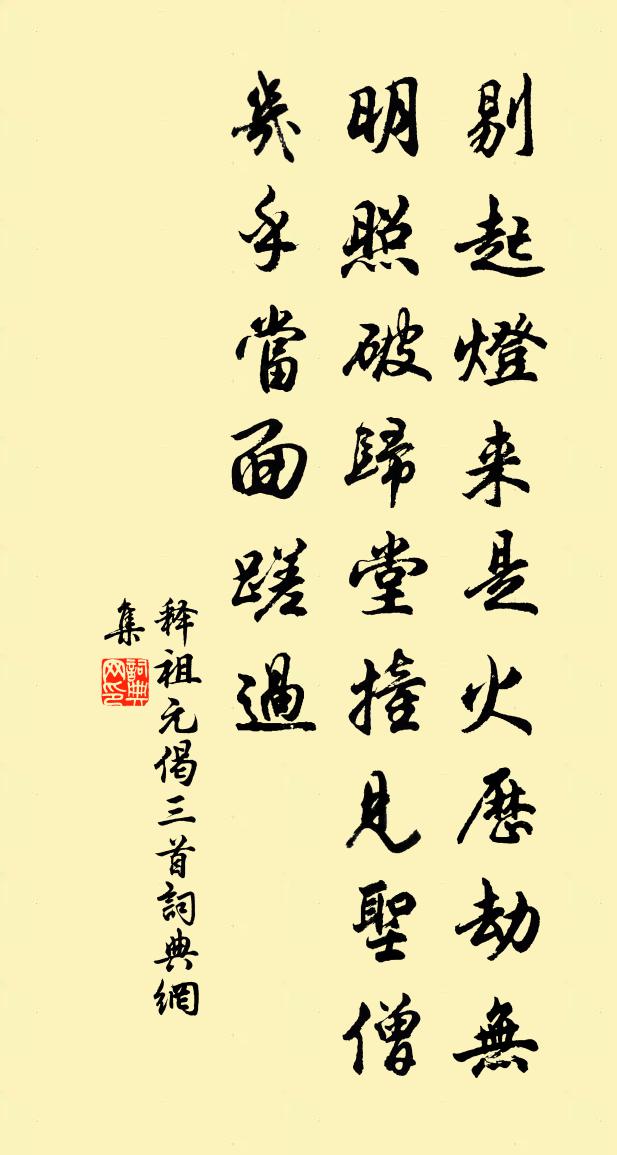 剔起燈来是火歷劫無
明照破歸堂撞見聖僧
幾乎當面蹉過
释祖元偈三首詞典網
集
詞典
网印